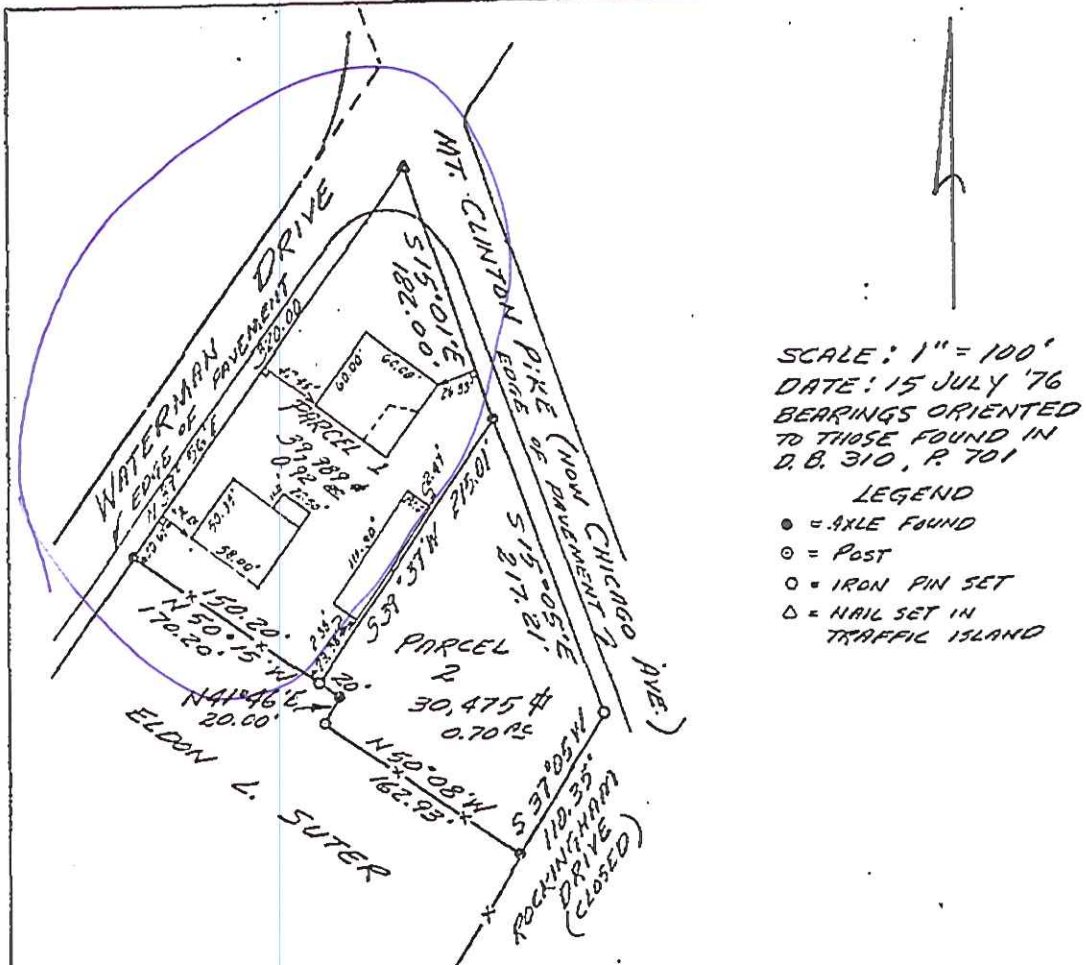 WATERMAN DRIVE
EDGE OF PAVEMENT
320.00
MT. CLINTON PIKE (NOW CHICAGO AVE.)
EDGE OF PAVEMENT
S 15°01'E
182.00'
60.00'
60.00'
PARCEL
39,789
0.92 AC
50.35'
58.00'
110.80'
215.01'
S 15°05'E
217.21'
150.20'
N 50°15'W
170.20'
20'
N 41°46'E
20.00'
PARCEL
2
30,475
0.70 AC
N 50°08'W
162.93'
S 37°05'W
110.35'
ROCKINGHAM
DRIVE
(CLOSED)
ELDON L. SUTER
SCALE: 1" = 100'
DATE: 15 JULY '76
BEARINGS ORIENTED
TO THOSE FOUND IN
D.B. 310, P. 701
LEGEND
● = AXLE FOUND
⊙ = POST
○ = IRON PIN SET
△ = NAIL SET IN
TRAFFIC ISLAND